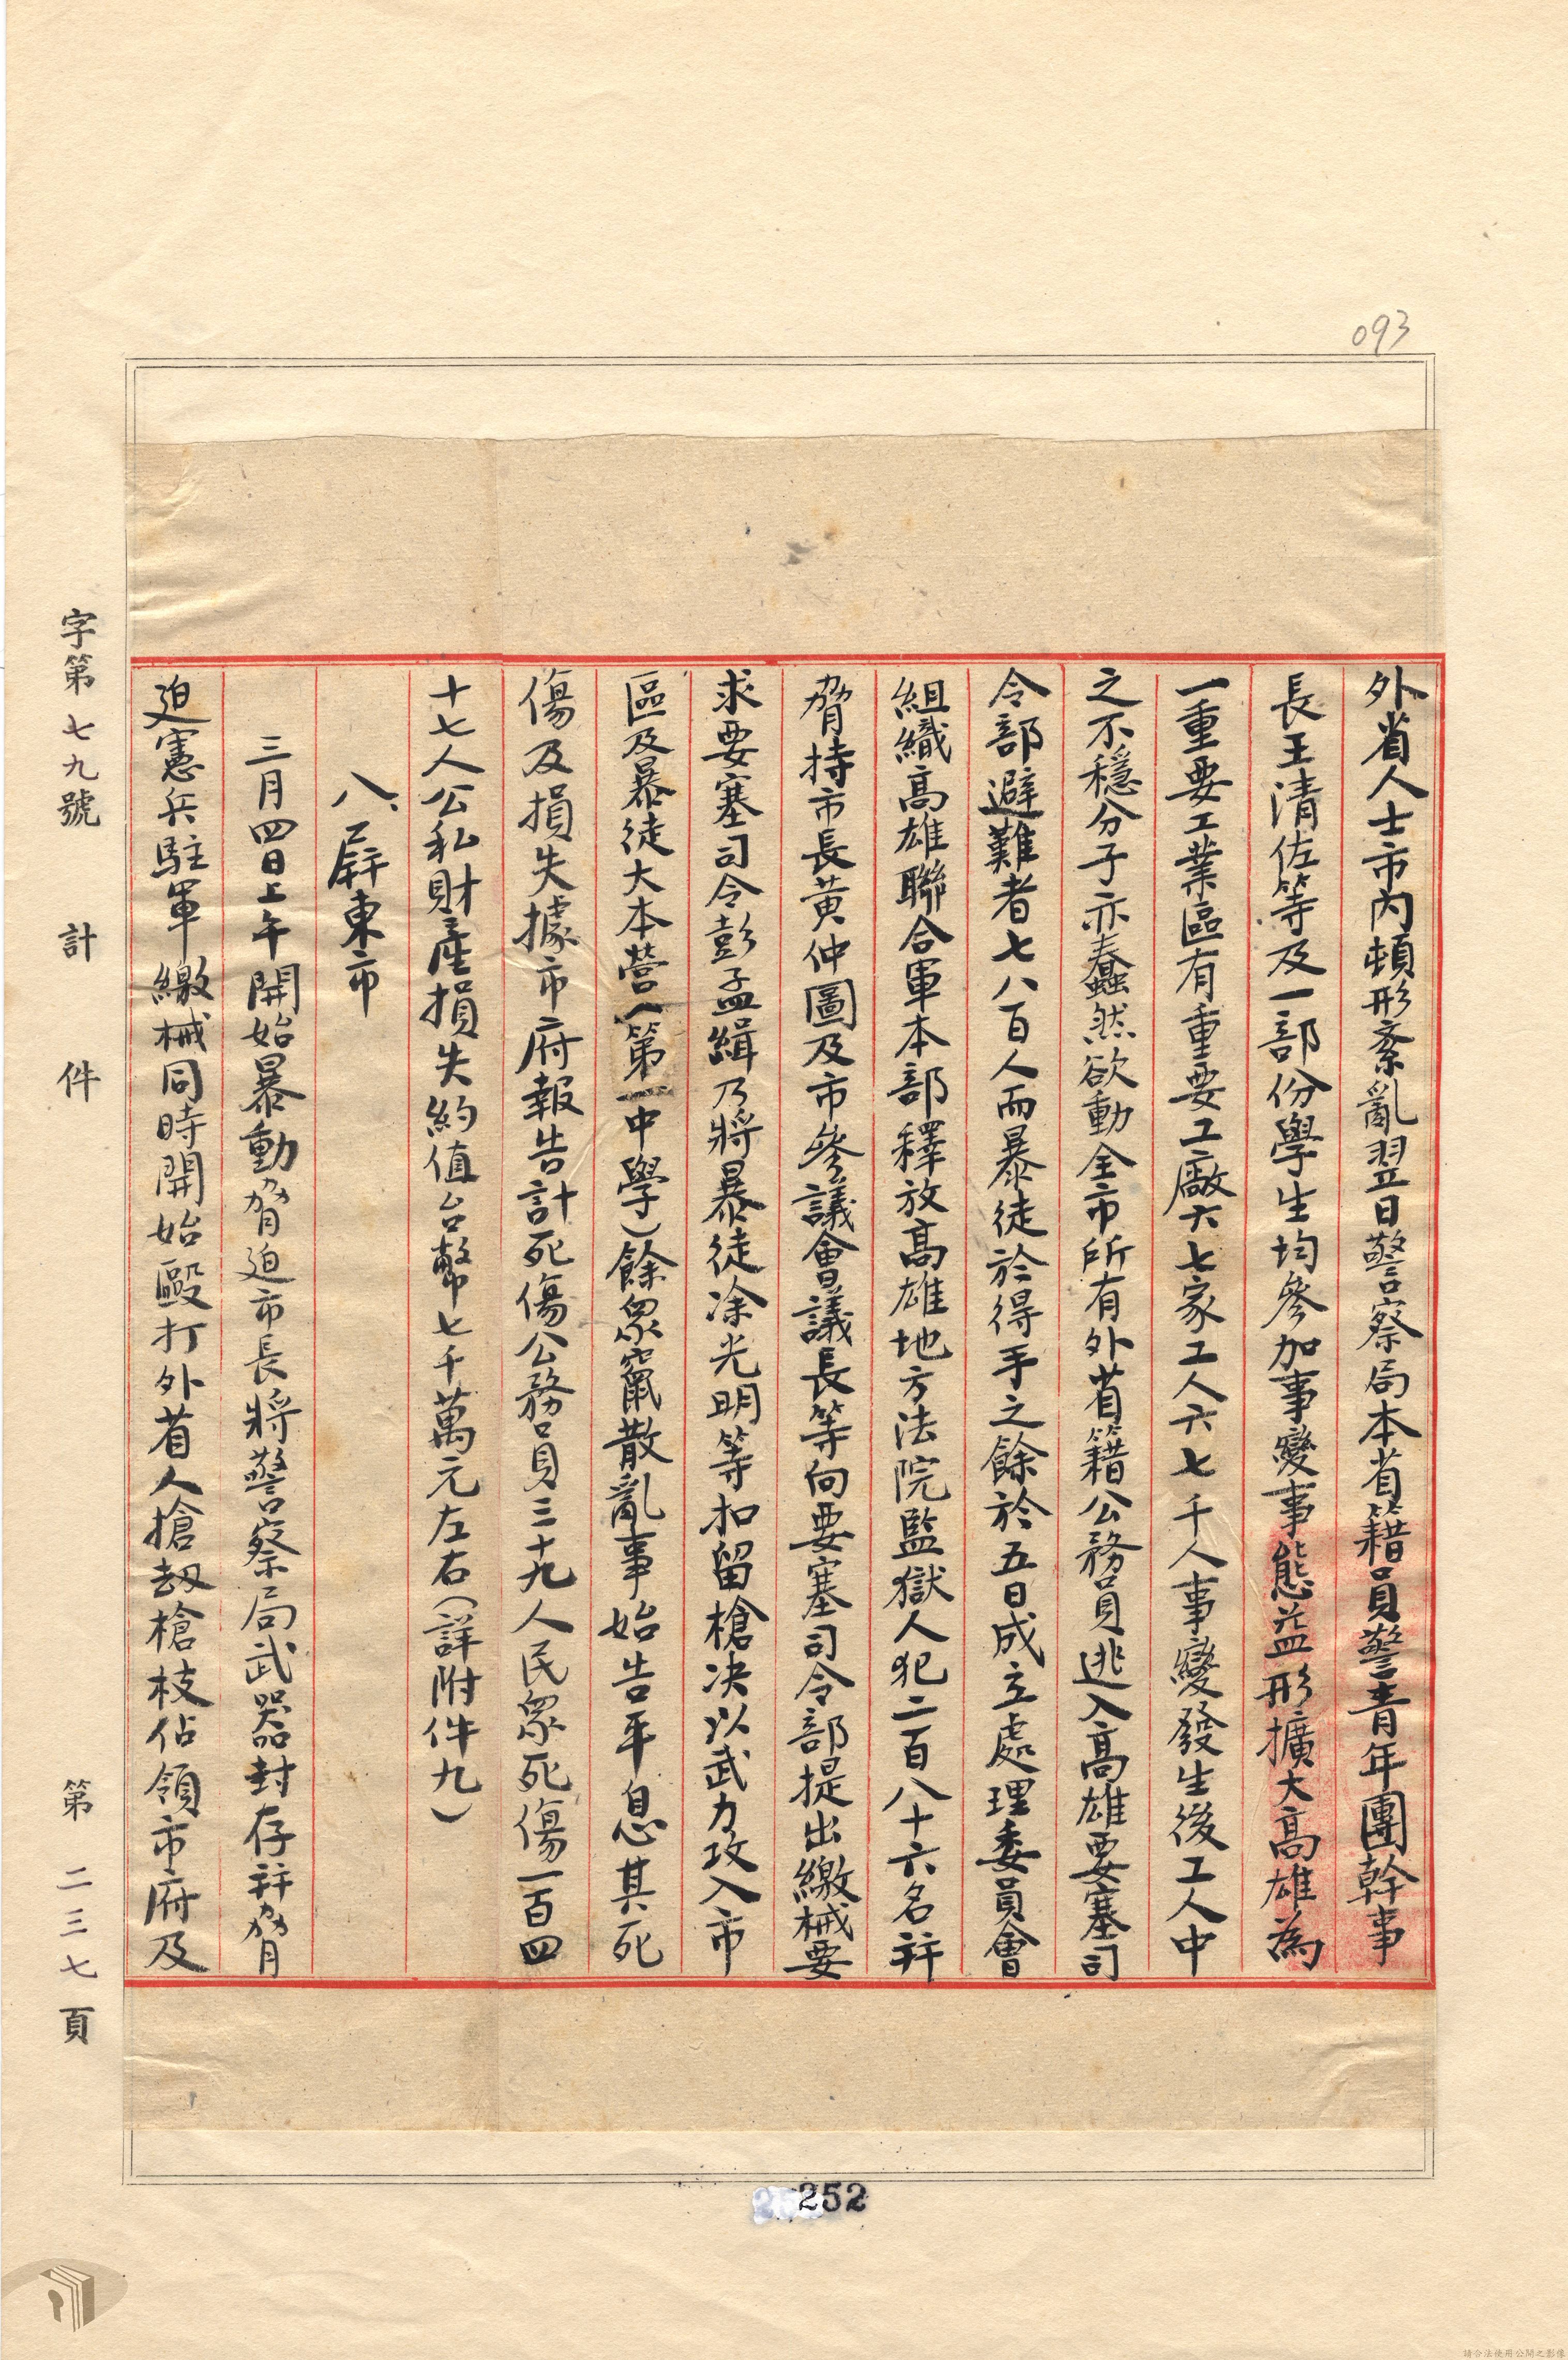 093
外省人士市內頓形紊亂翌日警察局本省籍員警青年團幹事
長王清佐等及一部份學生均參加事變事態益形擴大高雄為
一重要工業區有重要工廠六七家工人六七千人事變發生後工人中
之不穩分子亦蠢然欲動全市所有外省籍公務員逃入高雄要塞司
令部避難者七八百人而暴徒於得手之餘於五日成立處理委員會
組織高雄聯合軍本部釋放高雄地方法院監獄人犯二百八十六名并
脅持市長黃仲圖及市參議會議長等向要塞司令部提出繳械要
求要塞司令彭孟緝乃將暴徒凃光明等扣留槍決以武力攻入市
區及暴徒大本營(第一中學)餘眾竄散亂事始告平息其死
傷及損失據市府報告計死傷公務員三十九人民眾死傷一百四
十七人公私財產損失約值台幣七千萬元左右(詳附件九)
八、屏東市
三月四日上午開始暴動脅迫市長將警察局武器封存并脅
迫憲兵駐軍繳械同時開始毆打外省人搶刧槍枝佔領市府及
字第七九號 計 件 第二三七頁
252
請合法使用公開之影像